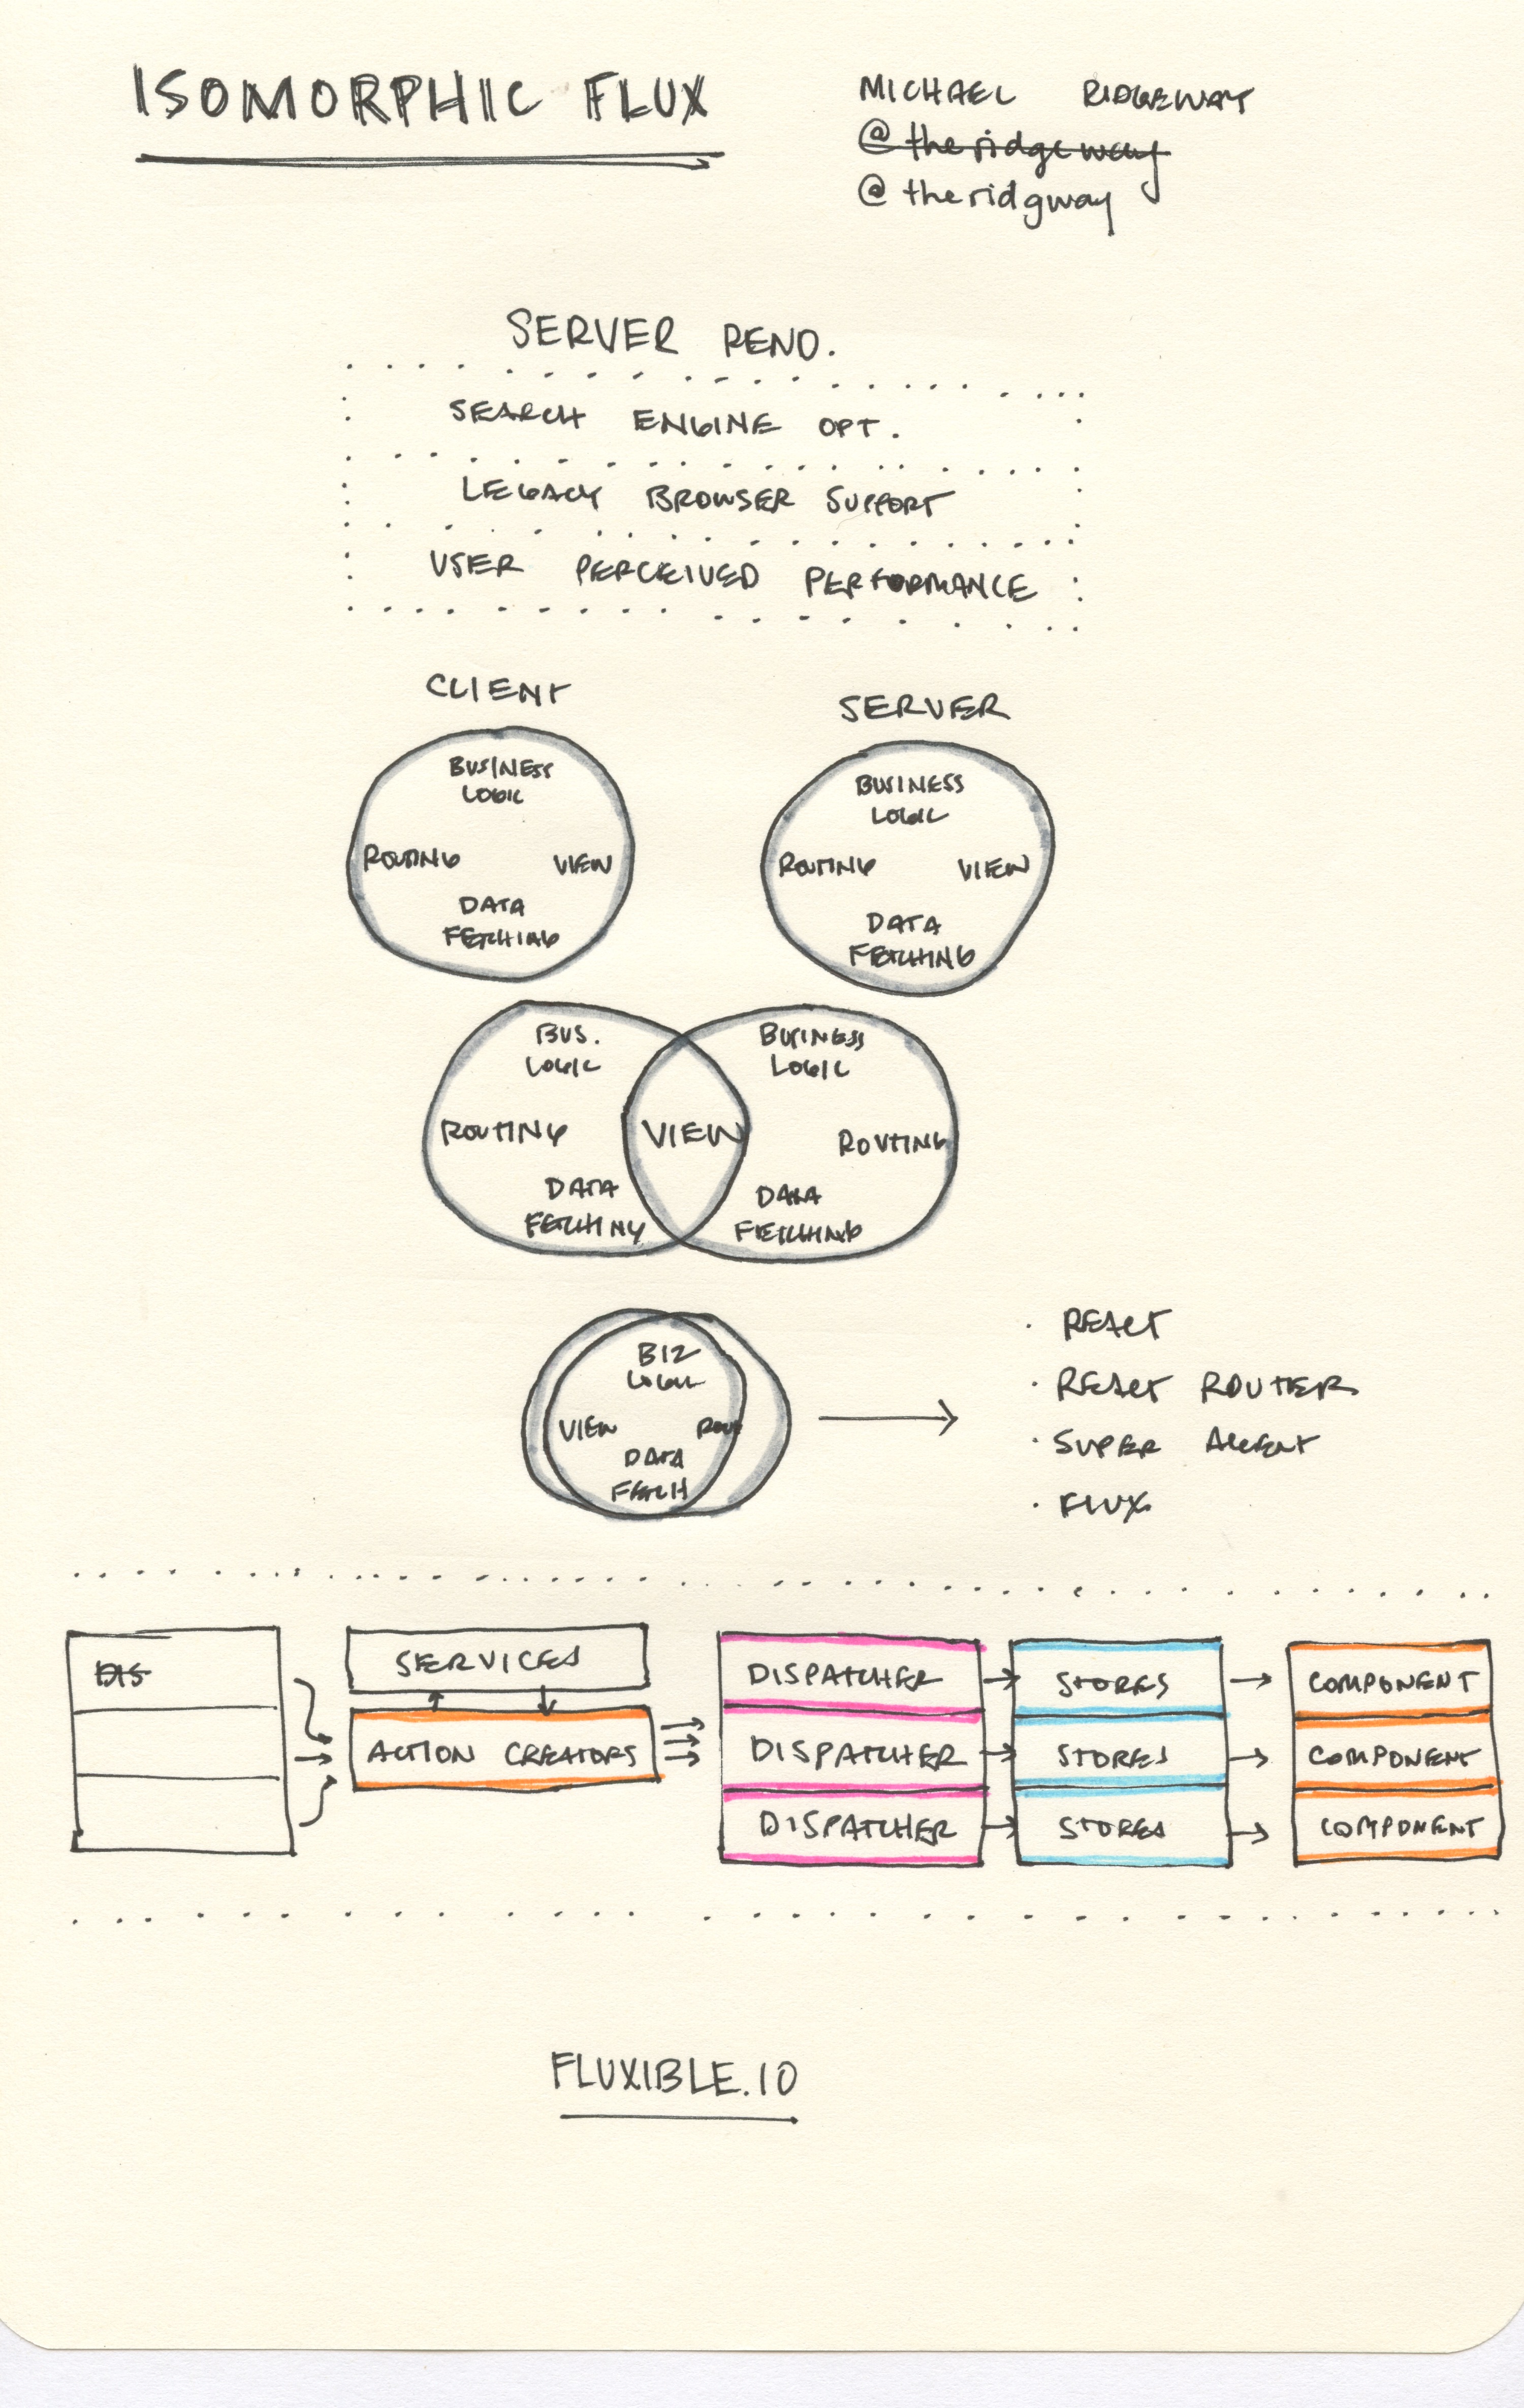 ISOMORPHIC FLUX
MICHAEL RIDGEWAY
@theridgeway
@theridgway
SERVER REND.
SEARCH ENGINE OPT.
LEGACY BROWSER SUPPORT
USER PERCEIVED PERFORMANCE
CLIENT
SERVER
BUSINESS
LOGIC
ROUTING
VIEW
DATA
FETCHING
BUSINESS
LOGIC
ROUTING
VIEW
DATA
FETCHING
BUS.
LOGIC
ROUTING
DATA
FETCHING
VIEW
BUSINESS
LOGIC
ROUTING
DATA
FETCHING
BIZ
LOGIC
VIEW
ROUT
DATA
FETCH
· REACT
· REACT ROUTER
· SUPER AGENT
· FLUX
DIS
SERVICES
ACTION CREATORS
DISPATCHER
STORES
COMPONENT
DISPATCHER
STORES
COMPONENT
DISPATCHER
STORES
COMPONENT
FLUXIBLE.IO